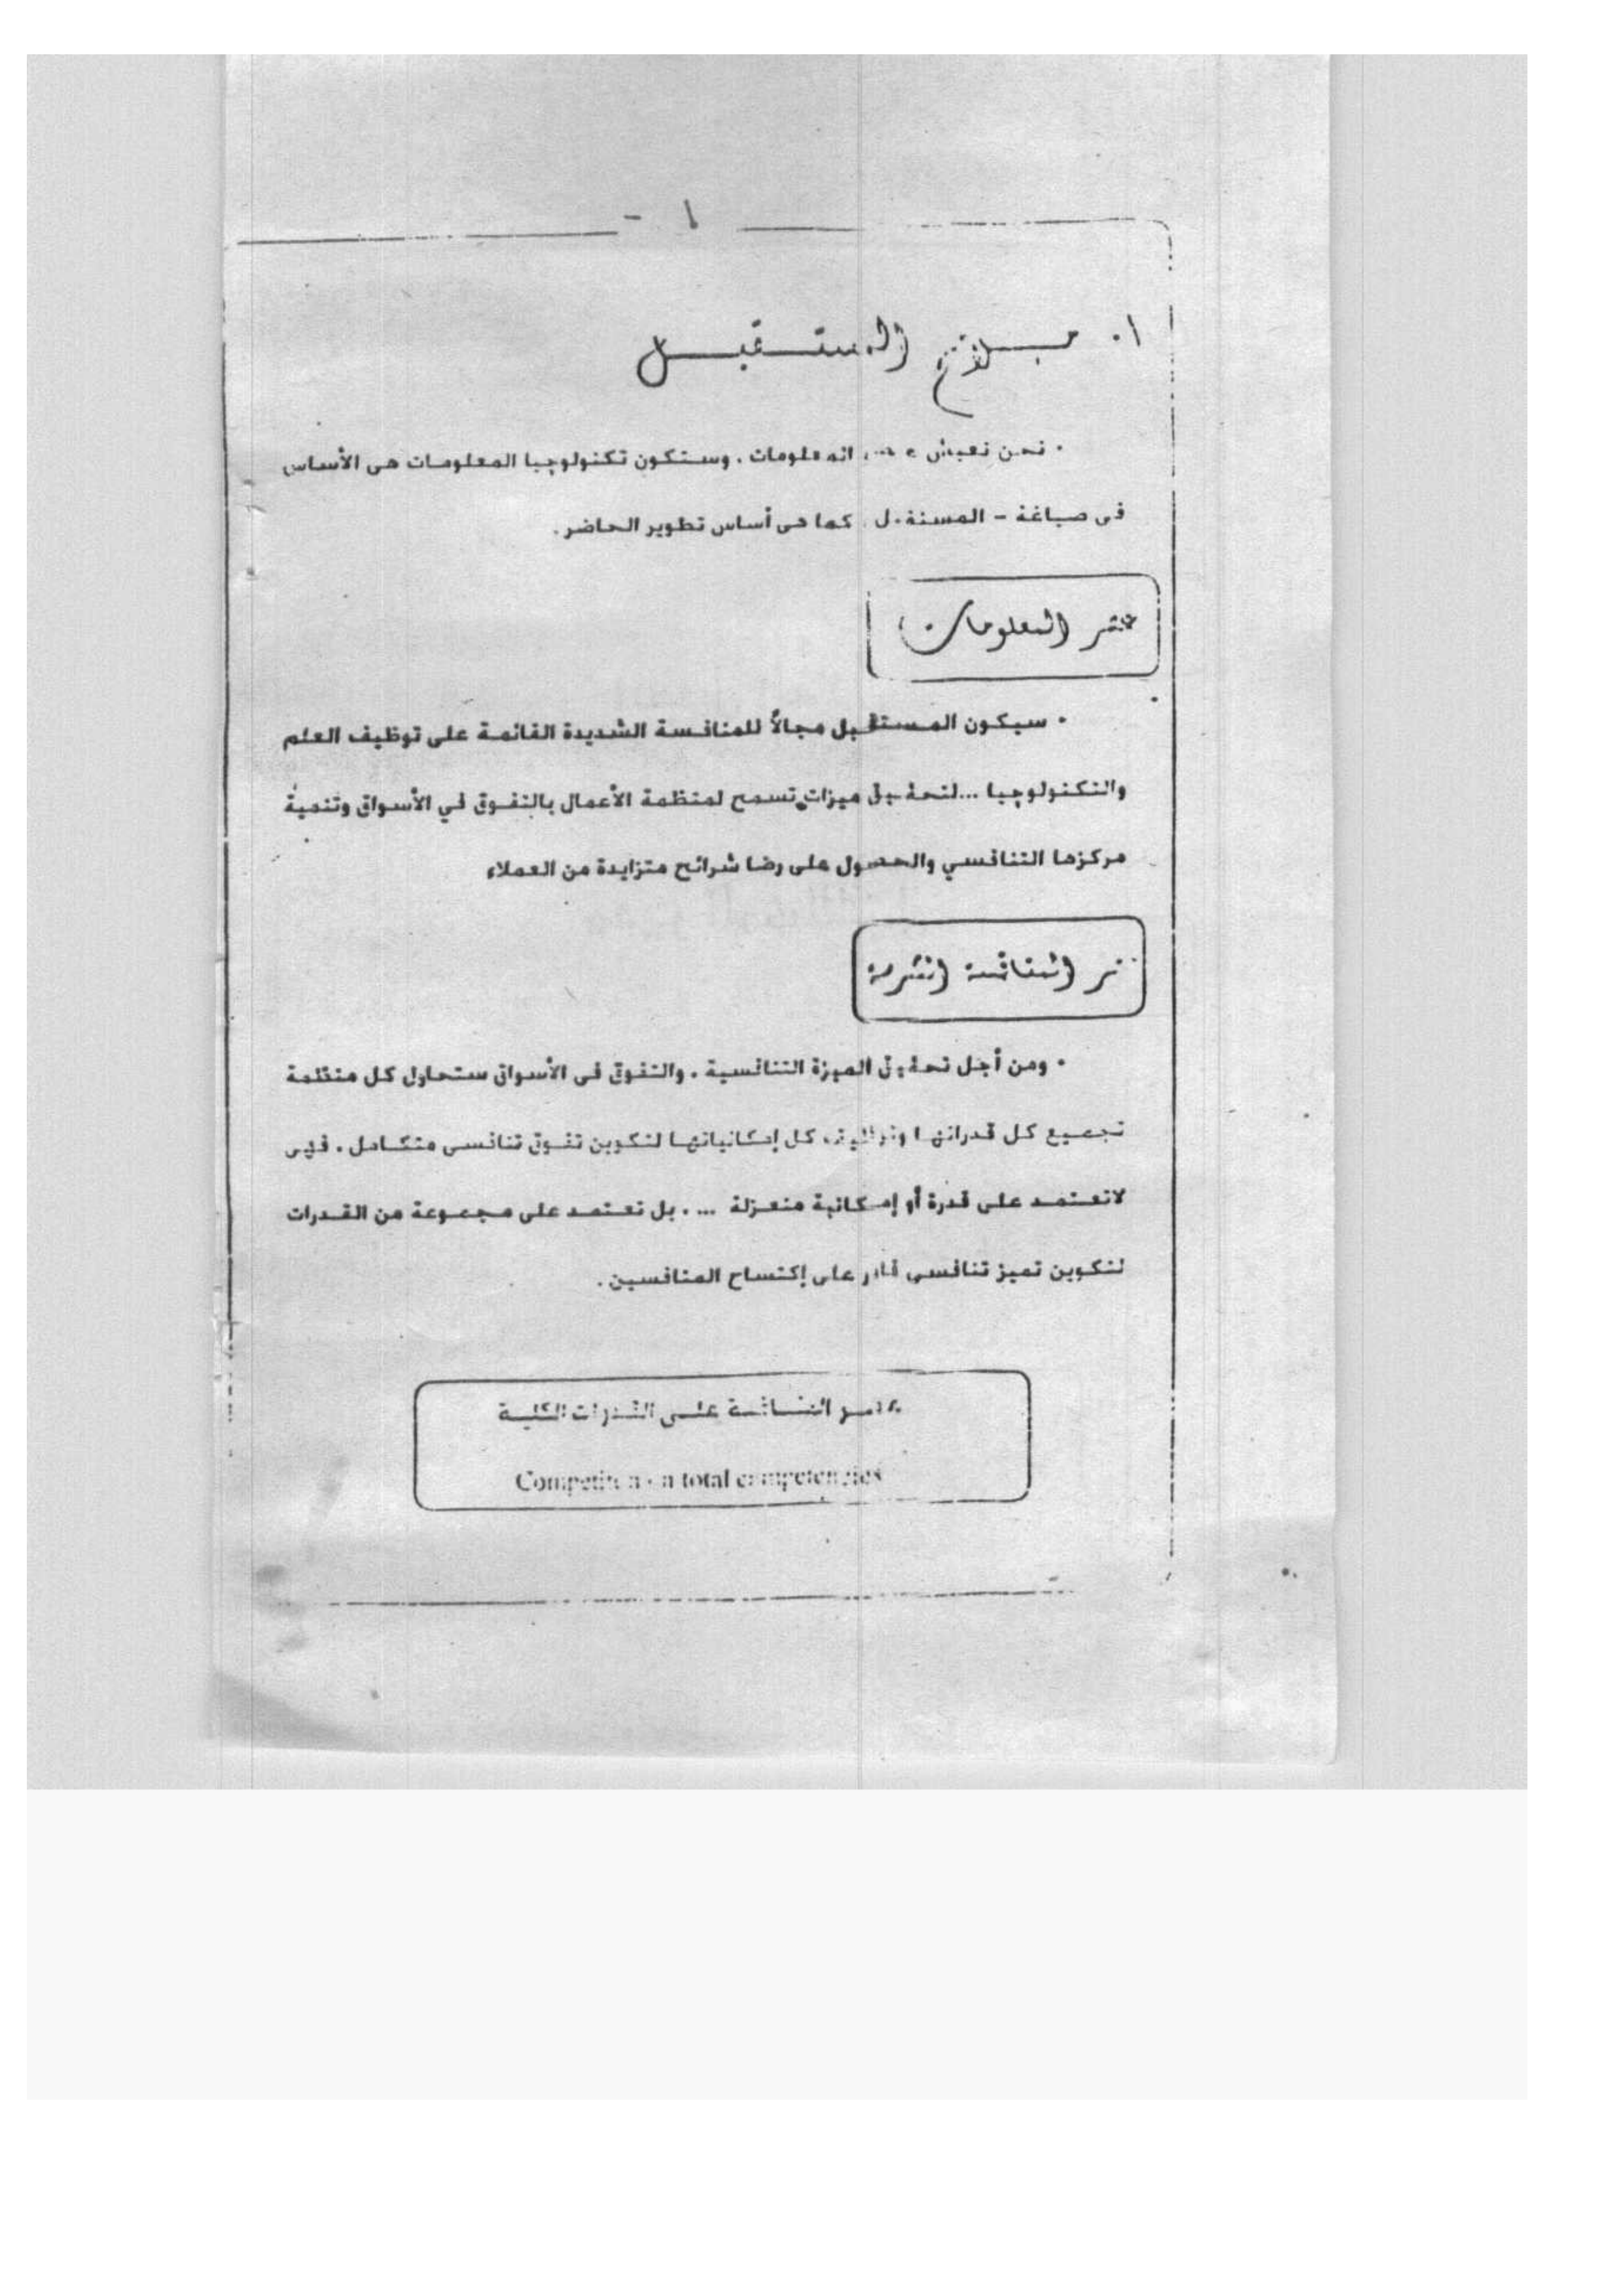 - ١
١. ملامح المستقبل
• نحن نعيش عصر المعلومات . وستكون تكنولوجيا المعلومات هى الأساس
فى صياغة - المستقبل كما هى أساس تطوير الحاضر .
عصر المعلومات
• سيكون المستقبل مجالاً للمنافسة الشديدة القائمة على توظيف العلم
والتكنولوجيا ... لتحقيق ميزات تسمح لمنظمة الأعمال بالتفوق في الأسواق وتنمية
مركزها التنافسي والحصول على رضا شرائح متزايدة من العملاء
عصر المنافسة الشرسة
• ومن أجل تحقيق الميزة التنافسية . والتفوق فى الأسواق ستحاول كل منظمة
تجميع كل قدراتها وتوظيف كل إمكانياتها لتكوين تفوق تنافسى متكامل . فهى
لاتعتمد على قدرة أو إمكانية منعزلة ... . بل تعتمد على مجموعة من القدرات
لتكوين تميز تنافسى قادر على إكتساح المنافسين .
عصر المنافسة على القدرات الكلية
Competition on total competencies